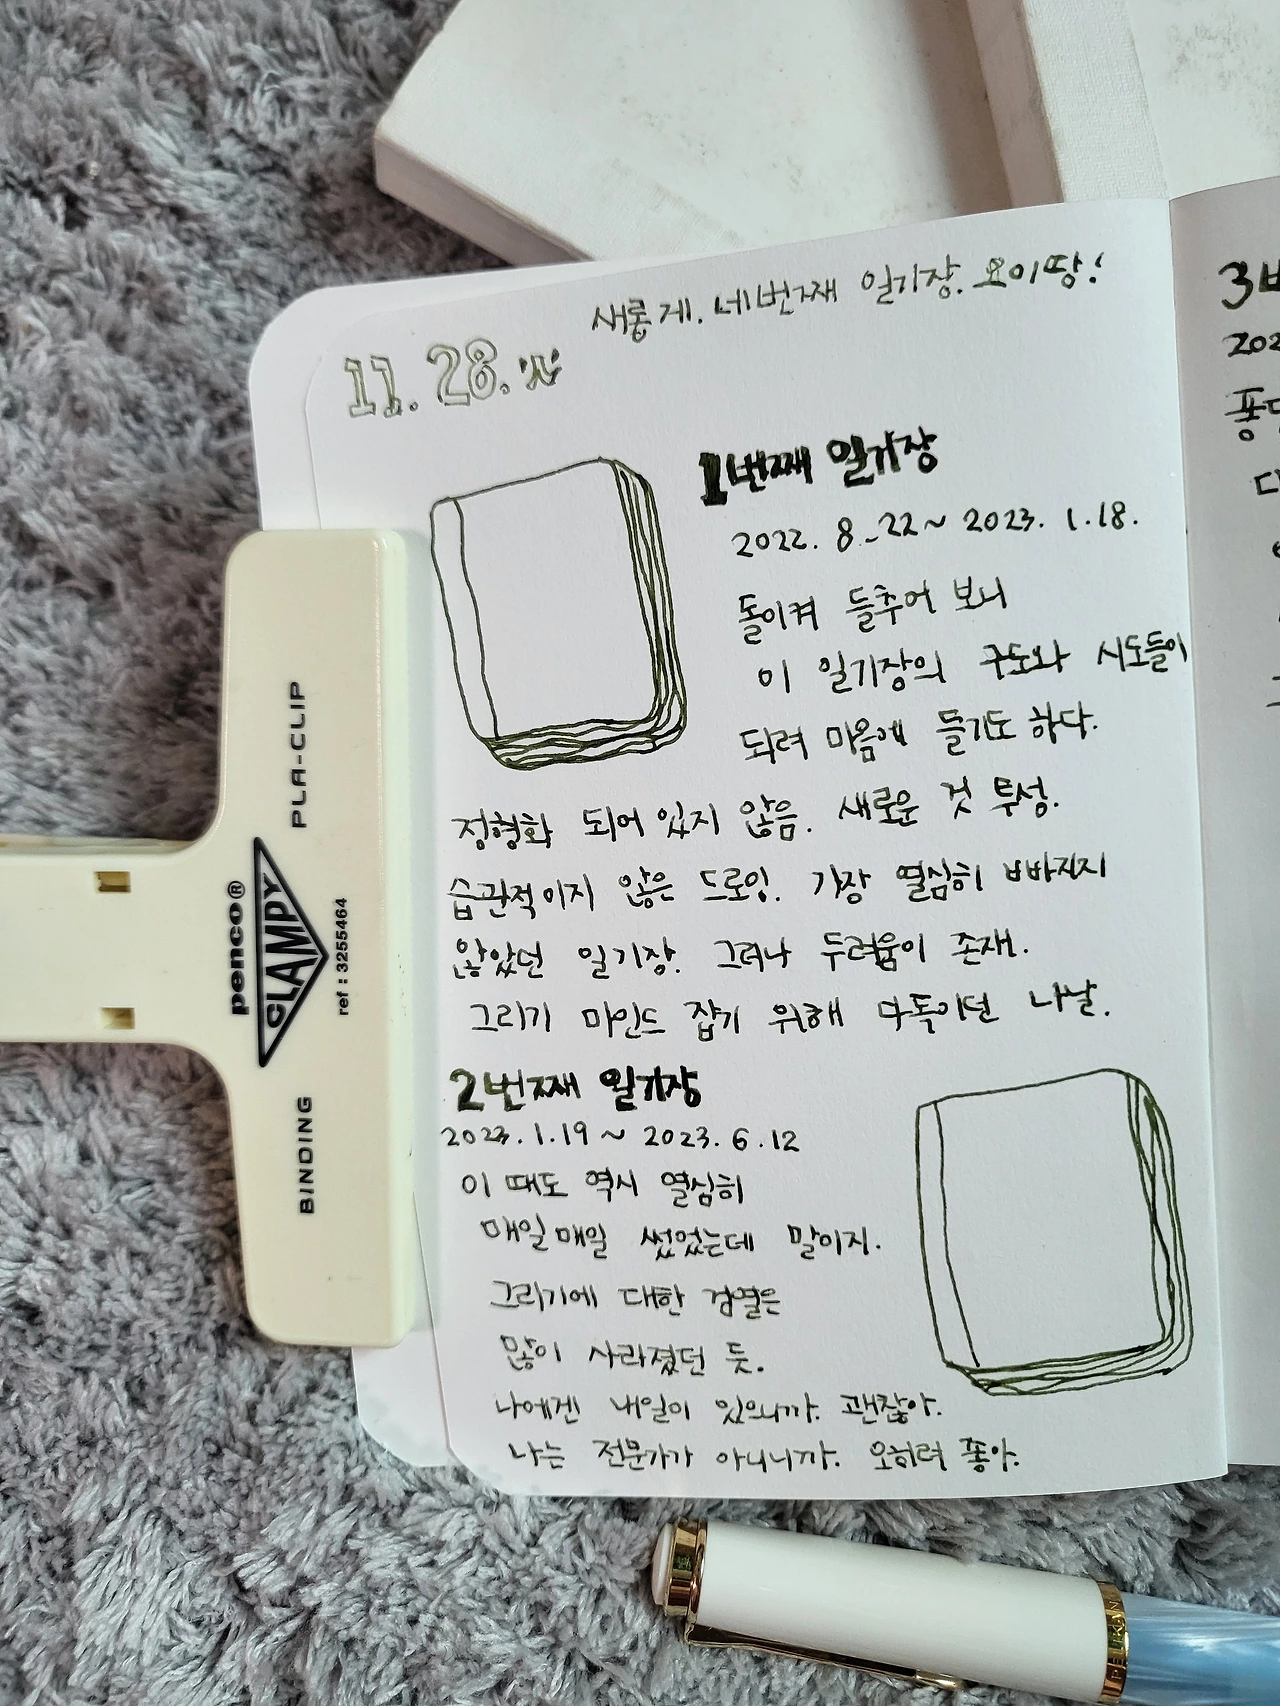 새롭게. 네번째 일기장. 요이땅!
11. 28. 火
1번째 일기장
2022. 8. 22 ~ 2023. 1. 18.
돌이켜 들추어 보니
이 일기장의 구도와 시도들이
되려 마음에 들기도 하다.
정형화 되어 있지 않음. 새로운 것 투성.
습관적이지 않은 드로잉. 가장 열심히 빠지지
않았던 일기장. 그러나 두려움이 존재.
그리기 마인드 잡기 위해 다독이던 나날.
2번째 일기장
2023. 1. 19 ~ 2023. 6. 12
이 때도 역시 열심히
매일매일 썼었는데 말이지.
그리기에 대한 검열은
많이 사라졌던 듯.
나에겐 내일이 있으니까. 괜찮아.
나는 전문가가 아니니까. 오히려 좋아.
3
202
PLA-CLIP
penco®
CLAMPY
ref : 3255464
BINDING
PELIKAN